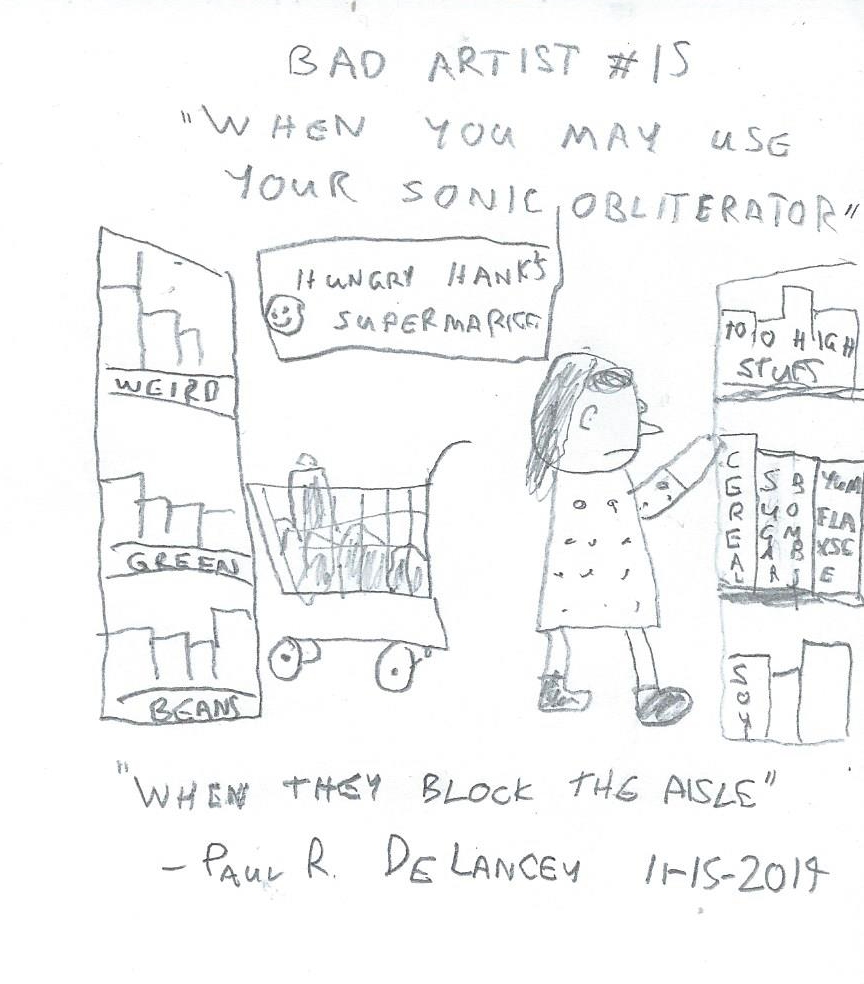 BAD ARTIST #15
"WHEN YOU MAY USE
YOUR SONIC OBLITERATOR"
HUNGRY HANK'S
SUPERMARKET
WEIRD
GREEN
BEANS
TOO HIGH
STUFF
CEREAL
SUGAR
BOMBS
YUM
FLA
XSE
E
SOY
"WHEN THEY BLOCK THE AISLE"
- PAUL R. DELANCEY 11-15-2014